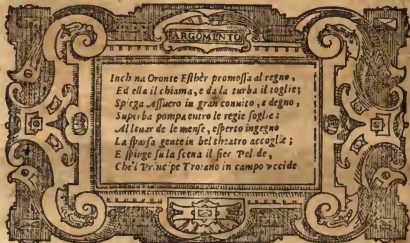 ARGOMENTO
Inchina Oronte Esthèr promossa al regno,
Ed ella il chiama, e da la turba il toglie;
Spiega Assuero in gran conuito, e degno,
Superba pompa entro le regie soglie:
Al leuar de le mense, esperto ingegno
La sparsa gente in bel theatro accoglie;
E spinge su la scena il fier Pelide,
Che'l Principe Troiano in campo vccide.